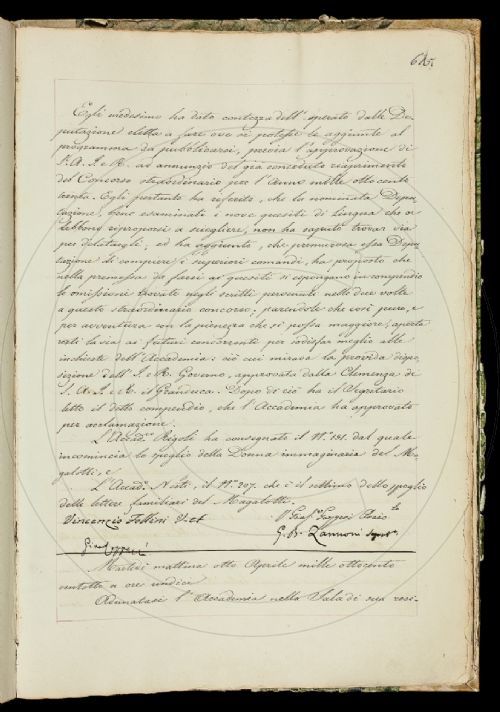 615.
Egli medesimo ha dato contezza dell'operato dalla De-
putazione eletta a fare ove si potesse le aggiunte al
programma da pubblicarsi, previa l'approvazione di
S. A. I. e R. ad annunzio del già conceduto riaprimento
del Concorso straordinario per l'Anno mille ottocento
trenta. Egli pertanto ha referito, che la nominata Depu-
tazione, bene esaminati i nove quesiti di Lingua che si
debbono riproporsi a sciogliere, non ha saputo trovar via
per dilatargli; ed ha aggiunto, che premurosa essa Depu-
tazione di compiere i superiori comandi, ha proposto che
nella premessa da farsi ai quesiti si espongano in compendio
le omissioni trovate negli scritti pervenuti nelle due volte
a questo straordinario concorso; parendole che così pure, e
per avventura con la pienezza che si possa maggiore, aperta
resti la via ai futuri concorrenti per sodisfar meglio alle
inchieste dell'Accademia: ciò cui mirava la provvida dispo-
sizione dell'I. e R. Governo, approvata dalla Clemenza di
S. A. I. e R. il Granduca. Dopo di ciò ha il Segretario
letto il detto compendio, che l'Accademia ha approvato
per acclamazione.
L'Accad.co Rigoli ha consegnato il N.° 191. dal quale
incomincia lo spoglio della Donna immaginaria del Ma-
galotti, e
L'Accad.co Nesti, il N.° 207. che è il settimo dello spoglio
delle lettere familiari del Magalotti.
Vincenzio Follini V.ct
G. B. Zannoni Segret.o
Martedì mattina otto Aprile mille ottocento
ventotto a ore undici
Adunatasi l'Accademia nella Sala di sua resi-